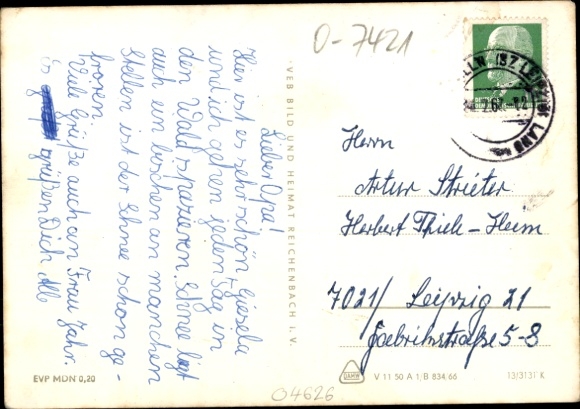 0-7421
Lieber Opa!
Hier ist es sehr schön, Gisela
und ich gehen jeden Tag in
den Wald spazieren. Schnee liegt
auch ein bischen an manchen
Stellen ist der Schne schon ge-
froren.
Viele Grüße auch an Frau Jahr.
grüßen Dich Alle
VEB BILD UND HEIMAT REICHENBACH I. V.
Herrn
Artur Strieter
Herbert Thiele-Heim
7021/ Leipzig 21
5-8
EVP MDN 0,20
V 11 50 A 1/B 834 66
13/3131 K
04626